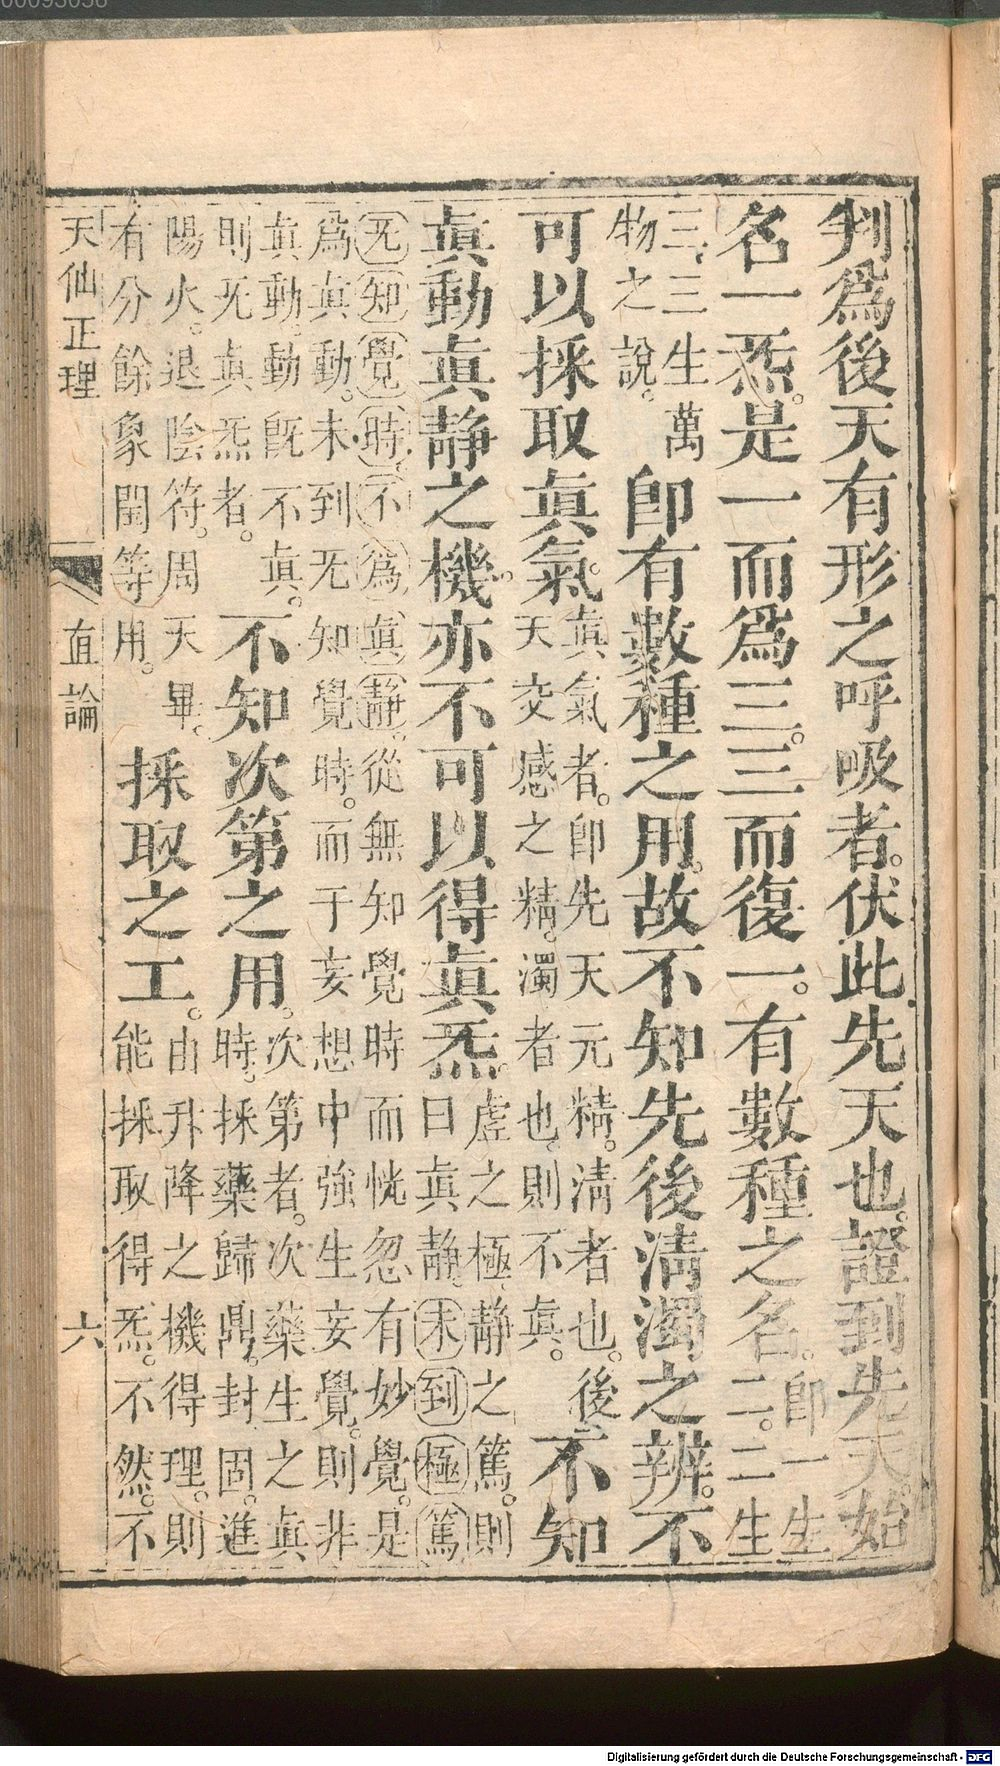 判爲後天有形之呼吸者。伏此先天也。證到先天。始
名一炁。是一而爲三。三而復一。有數種之名。卽一生
二。二生
三。三生萬
物之說。卽有數種之用。故不知先後淸濁之辨。不
可以採取眞氣。眞氣者。卽先天元精。淸者也。後
天交感之精。濁者也。則不眞。不知
眞動眞静之機。亦不可以得眞炁。虛之極。静之篤。則
曰眞静。未到極篤
无知覺時。不爲眞靜。從無知覺時而恍忽有妙覺。是
爲眞動。未到无知覺時。而于妄想中強生妄覺。則非
眞動。動旣不眞。
則无眞炁者。不知次第之用。次第者。次藥生之眞
時。採藥歸鼎。封固。進
陽火。退陰符。周天畢。
有分餘象閏等用。採取之工。由升降之機得理。則
能採取得炁。不然。不
天仙正理 直論 六
Digitalisierung gefördert durch die Deutsche Forschungsgemeinschaft - DFG